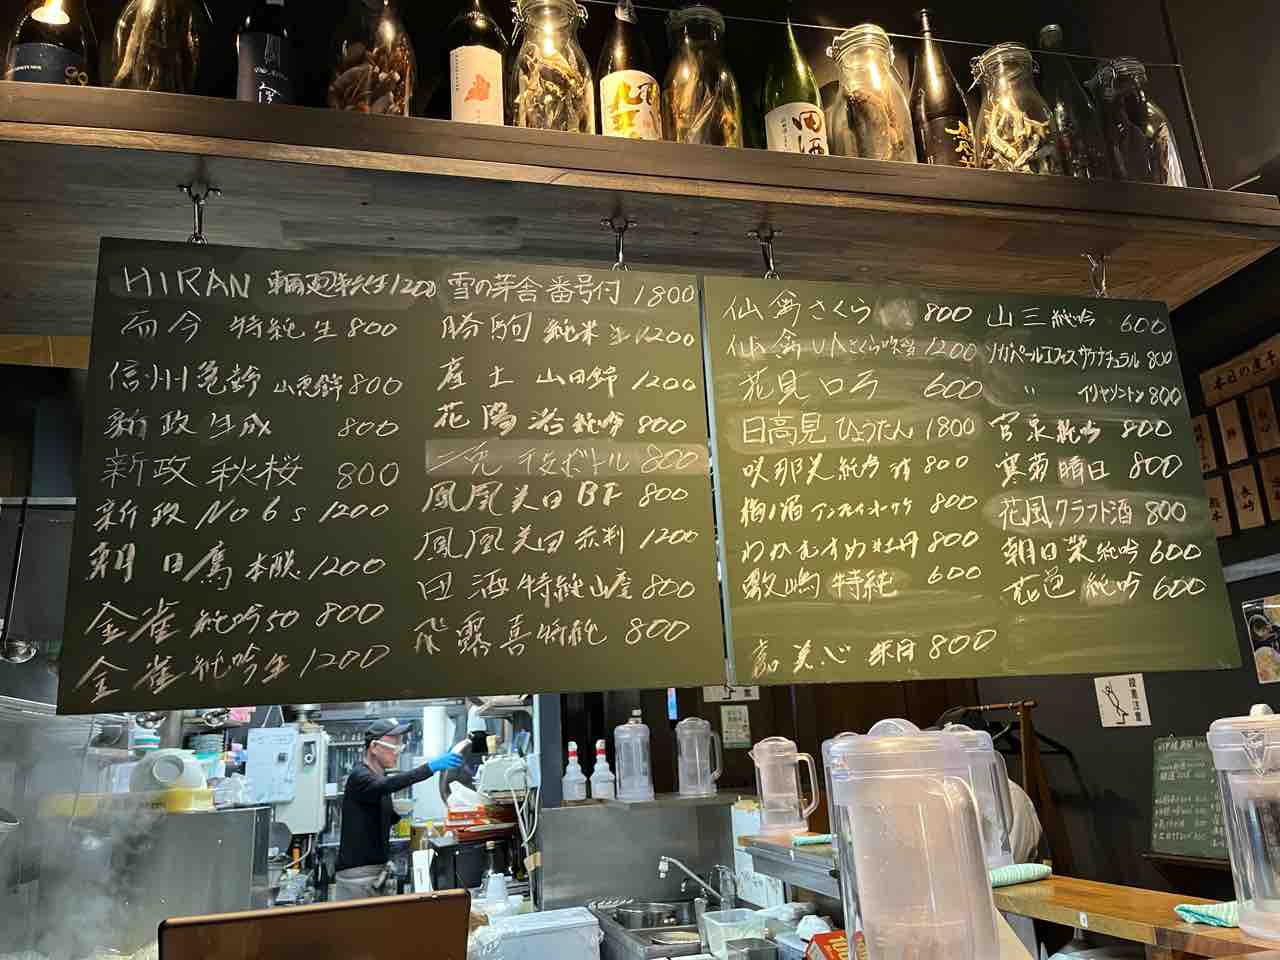 田酒
HIRAN 1200
而今 特純生 800
信州亀齢 山恵錦 800
新政 生成 800
新政 秋桜 800
新政 No6 s 1200
朝日鷹 本醸 1200
金雀 純吟50 800
金雀 純吟生 1200
雪の芽舎 番号付 1800
勝駒 純米生 1200
産土 山田錦 1200
花陽浴 純吟 800
干支ボトル 800
鳳凰美田 BF 800
鳳凰美田 赤判 1200
田酒 特純山廃 800
飛露喜 特純 800
仙禽 さくら 800
仙禽 UA さくら 1200
花見ロ万 600
日高見 ひょうたん 1800
咲那美 800
梅ノ酒 800
わかむすめ 牡丹 800
敷嶋 特純 600
嘉美心 800
山三 純吟 600
ソガペールエフィス サケナチュラル 800
〃 イリヤソントン 800
宮泉 純吟 800
寒菊 晴日 800
花風 クラフト酒 800
朝日栄 純吟 600
花邑 純吟 600
本日の煮干
長崎
熊本
段差注意